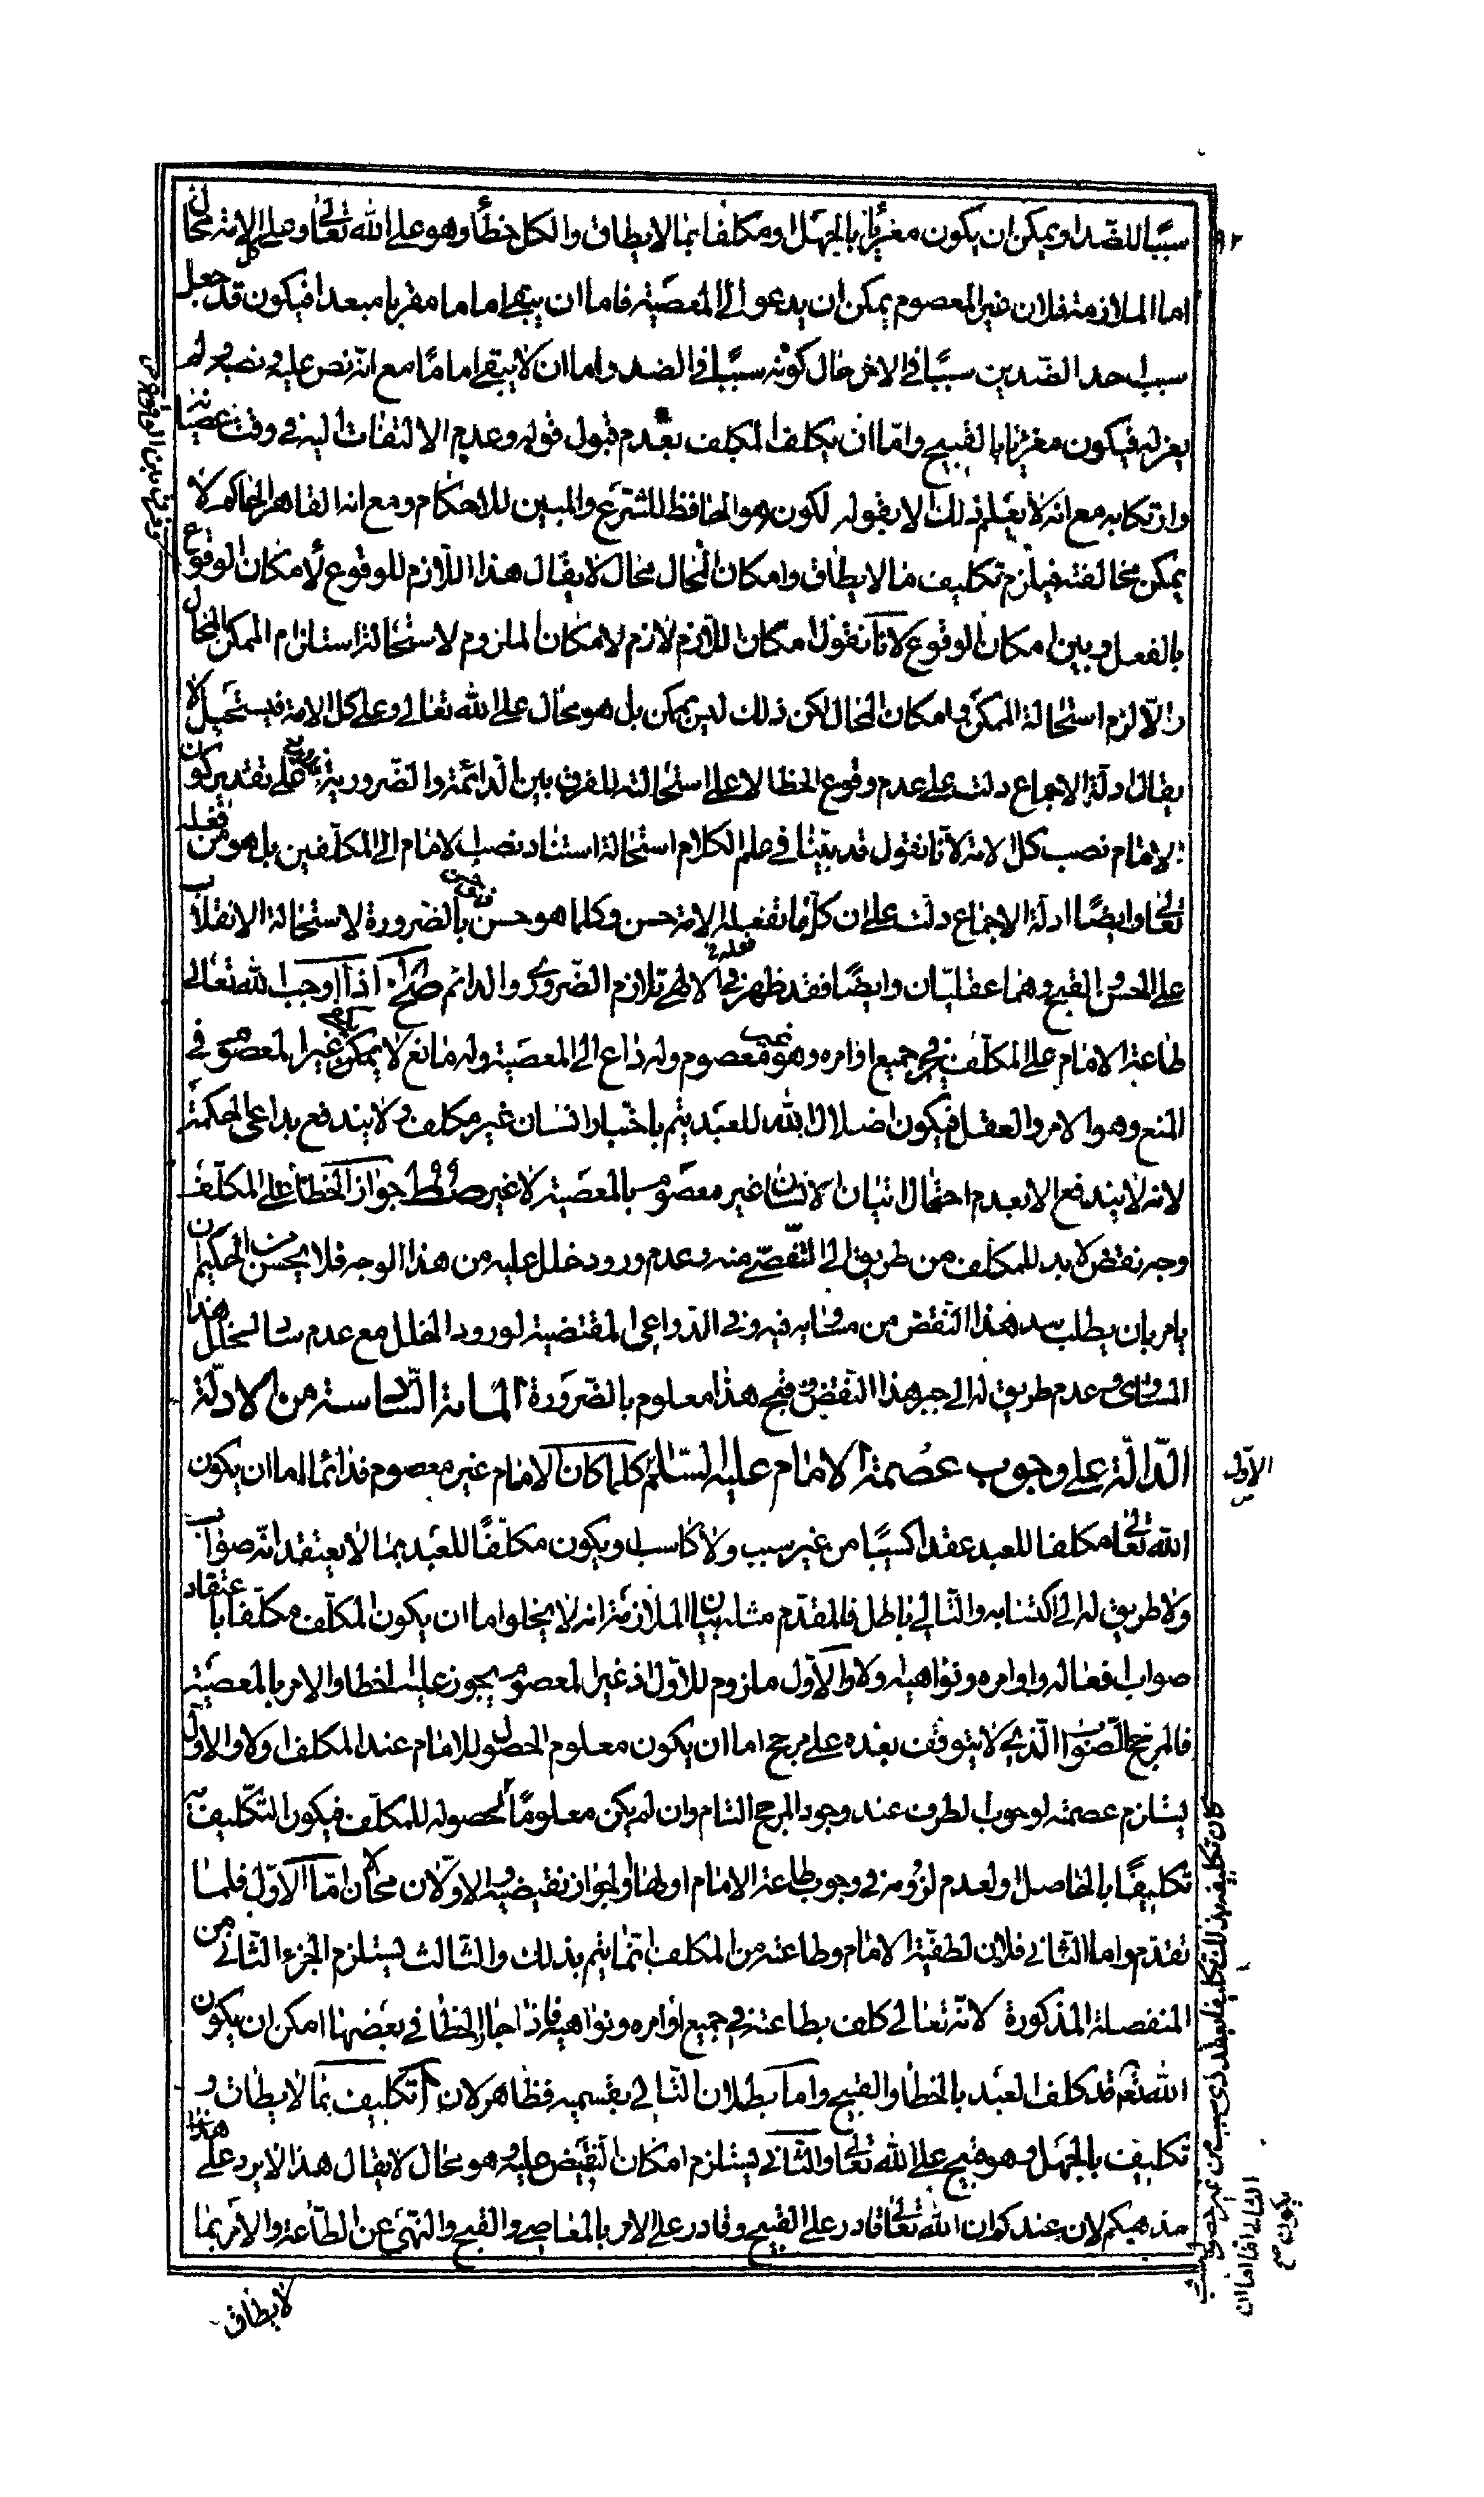 سببا للضد او يمكن ان يكون مغريا بالجهل او مكلفا بما لا يطاق والكل خطأ وهو على الله تعالى وعلى كل الامة محال
اما الملازمة فلان غير المعصوم يمكن ان يدعو الى المعصية فاما ان يبقى اماما مقربا مبعدا فيكون قد جعل
سبب احد الضدين سببا في الاخر حال كونه سببا في الضد واما ان لا يبقى اماما مع انه نص عليه ونصبه ولم
يعزله فيكون مغريا بالقبيح واما ان يكلف المكلف بعدم قبول قوله وعدم الالتفات اليه في وقت عصيانه
وارتكابه مع انه لا يعلم ذلك الا بقوله لكون هو الحافظ للشرع والمبين للاحكام ومع انه القاهر الحاكم لا
يمكن مخالفته فيلزم تكليف ما لا يطاق وامكان المحال محال لا يقال هذا اللازم للوقوع لا مكان الوقوع
بالفعل وبين امكان الوقوع لانا نقول امكان اللازم لازم لامكان الملزوم لاستحالة استلزام الممكن المحال
والا لزم استحالة الممكن وامكان المحال لكن ذلك ليس بممكن بل هو محال على الله تعالى وعلى كل الامة فيستحيل لا
يقال ادلة الاجماع دلت على عدم وقوع الخطا لا على استحالته للفرق بين الدائمة والضرورية على تقدير كون
الامام نصب كل الامة لانا نقول قد بينا في علم الكلام استحالة استناد نصب الامام الى المكلفين بل هو من فعله
تعالى وايضا ادلة الاجماع دلت على ان كل ما تفعله الامة حسن وكلما هو حسن فهو حسن بالضرورة لاستحالة الانقلاب
على الحسن والقبح وهما عقليان وايضا فقد ظهر في الالهي تلازم الضروري والدائم اذا اوجب الله تعالى
طاعة الامام على المكلف في جميع اوامره وهو غير معصوم وله داع الى المعصية وله مانع لا يمكن غير المعصوم في
المنع وهو الامر والعقل فيكون اضلال الله للعبد يتم باختيار انسان غير مكلف ولا يندفع بداعي الحكمة
لانه لا يندفع الا بعدم احتمال اتيان الانسان غير معصوم بالمعصية لا غير جواز الخطأ على المكلف
وجه نقض لا بد للمكلف من طريق الى التفصي منه وعدم ورود خلل عليه من هذا الوجه فلا يحسن من الحكيم ان
يامر بان يطلب سد هذا النقض من مساويه فيه وفي الدواعي المقتضية لورود الخلل مع عدم ساد لخلل هذا
المساوي وعدم طريق له الى جبر هذا النقض وقبح هذا معلوم بالضرورة المائة السادسة من الادلة
الدالة على وجوب عصمة الامام عليه السلم كلما كان الامام غير معصوم فدائما اما ان يكون
الله تعالى مكلفا للعبد عقدا كسبيا من غير سبب ولا كاسب او يكون مكلفا للعبد بما لا يعتقد انه صواب
ولا طريق له الى اكتسابه والتالي باطل فالمقدم مثله بيان الملازمة انه لا يخلو اما ان يكون المكلف مكلفا باعتقاد
صواب افعاله واوامره ونواهيه اولا والاول ملزوم للاول اذ غير المعصوم يجوز عليه الخطا والامر بالمعصية
فالمرجح للصواب الذي لا يتوقف بعده على مرجح اما ان يكون معلوم الحصول للامام عند المكلف اولا والاول
يستلزم عصمته لوجوب الطرف عند وجود المرجح التام وان لم يكن معلوما حصوله للمكلف فيكون التكليف به
تكليفا بالحاصل او لعدم لزومه في وجوب طاعة الامام اولها او لجواز نقيضه والاولان محالان اما الاول فلما
تقدم واما الثاني فلان لطفية الامام وطاعته من المكلف انما يتم بذلك والثالث يستلزم الجزء الثاني من
المنفصلة المذكورة لانه تعالى كلف بطاعته في جميع اوامره ونواهيه فاذا جاز الخطأ في بعضها امكن ان يكون
الله تعم قد كلف العبد بالخطا والقبيح واما بطلان التالي بقسميه فظاهر لان تكليف بما لا يطاق و
تكليف بالجهل وهو قبيح على الله تعالى والثاني يستلزم امكان النقيض عليه وهو محال لا يقال هذا لا يرد على هذا
مذهبكم لان عندكم ان الله تعالى قادر على القبيح وقادر على الامر بالمعاصي والقبح والنهى عن الطاعة والامر بما
لا يطاق
الاول